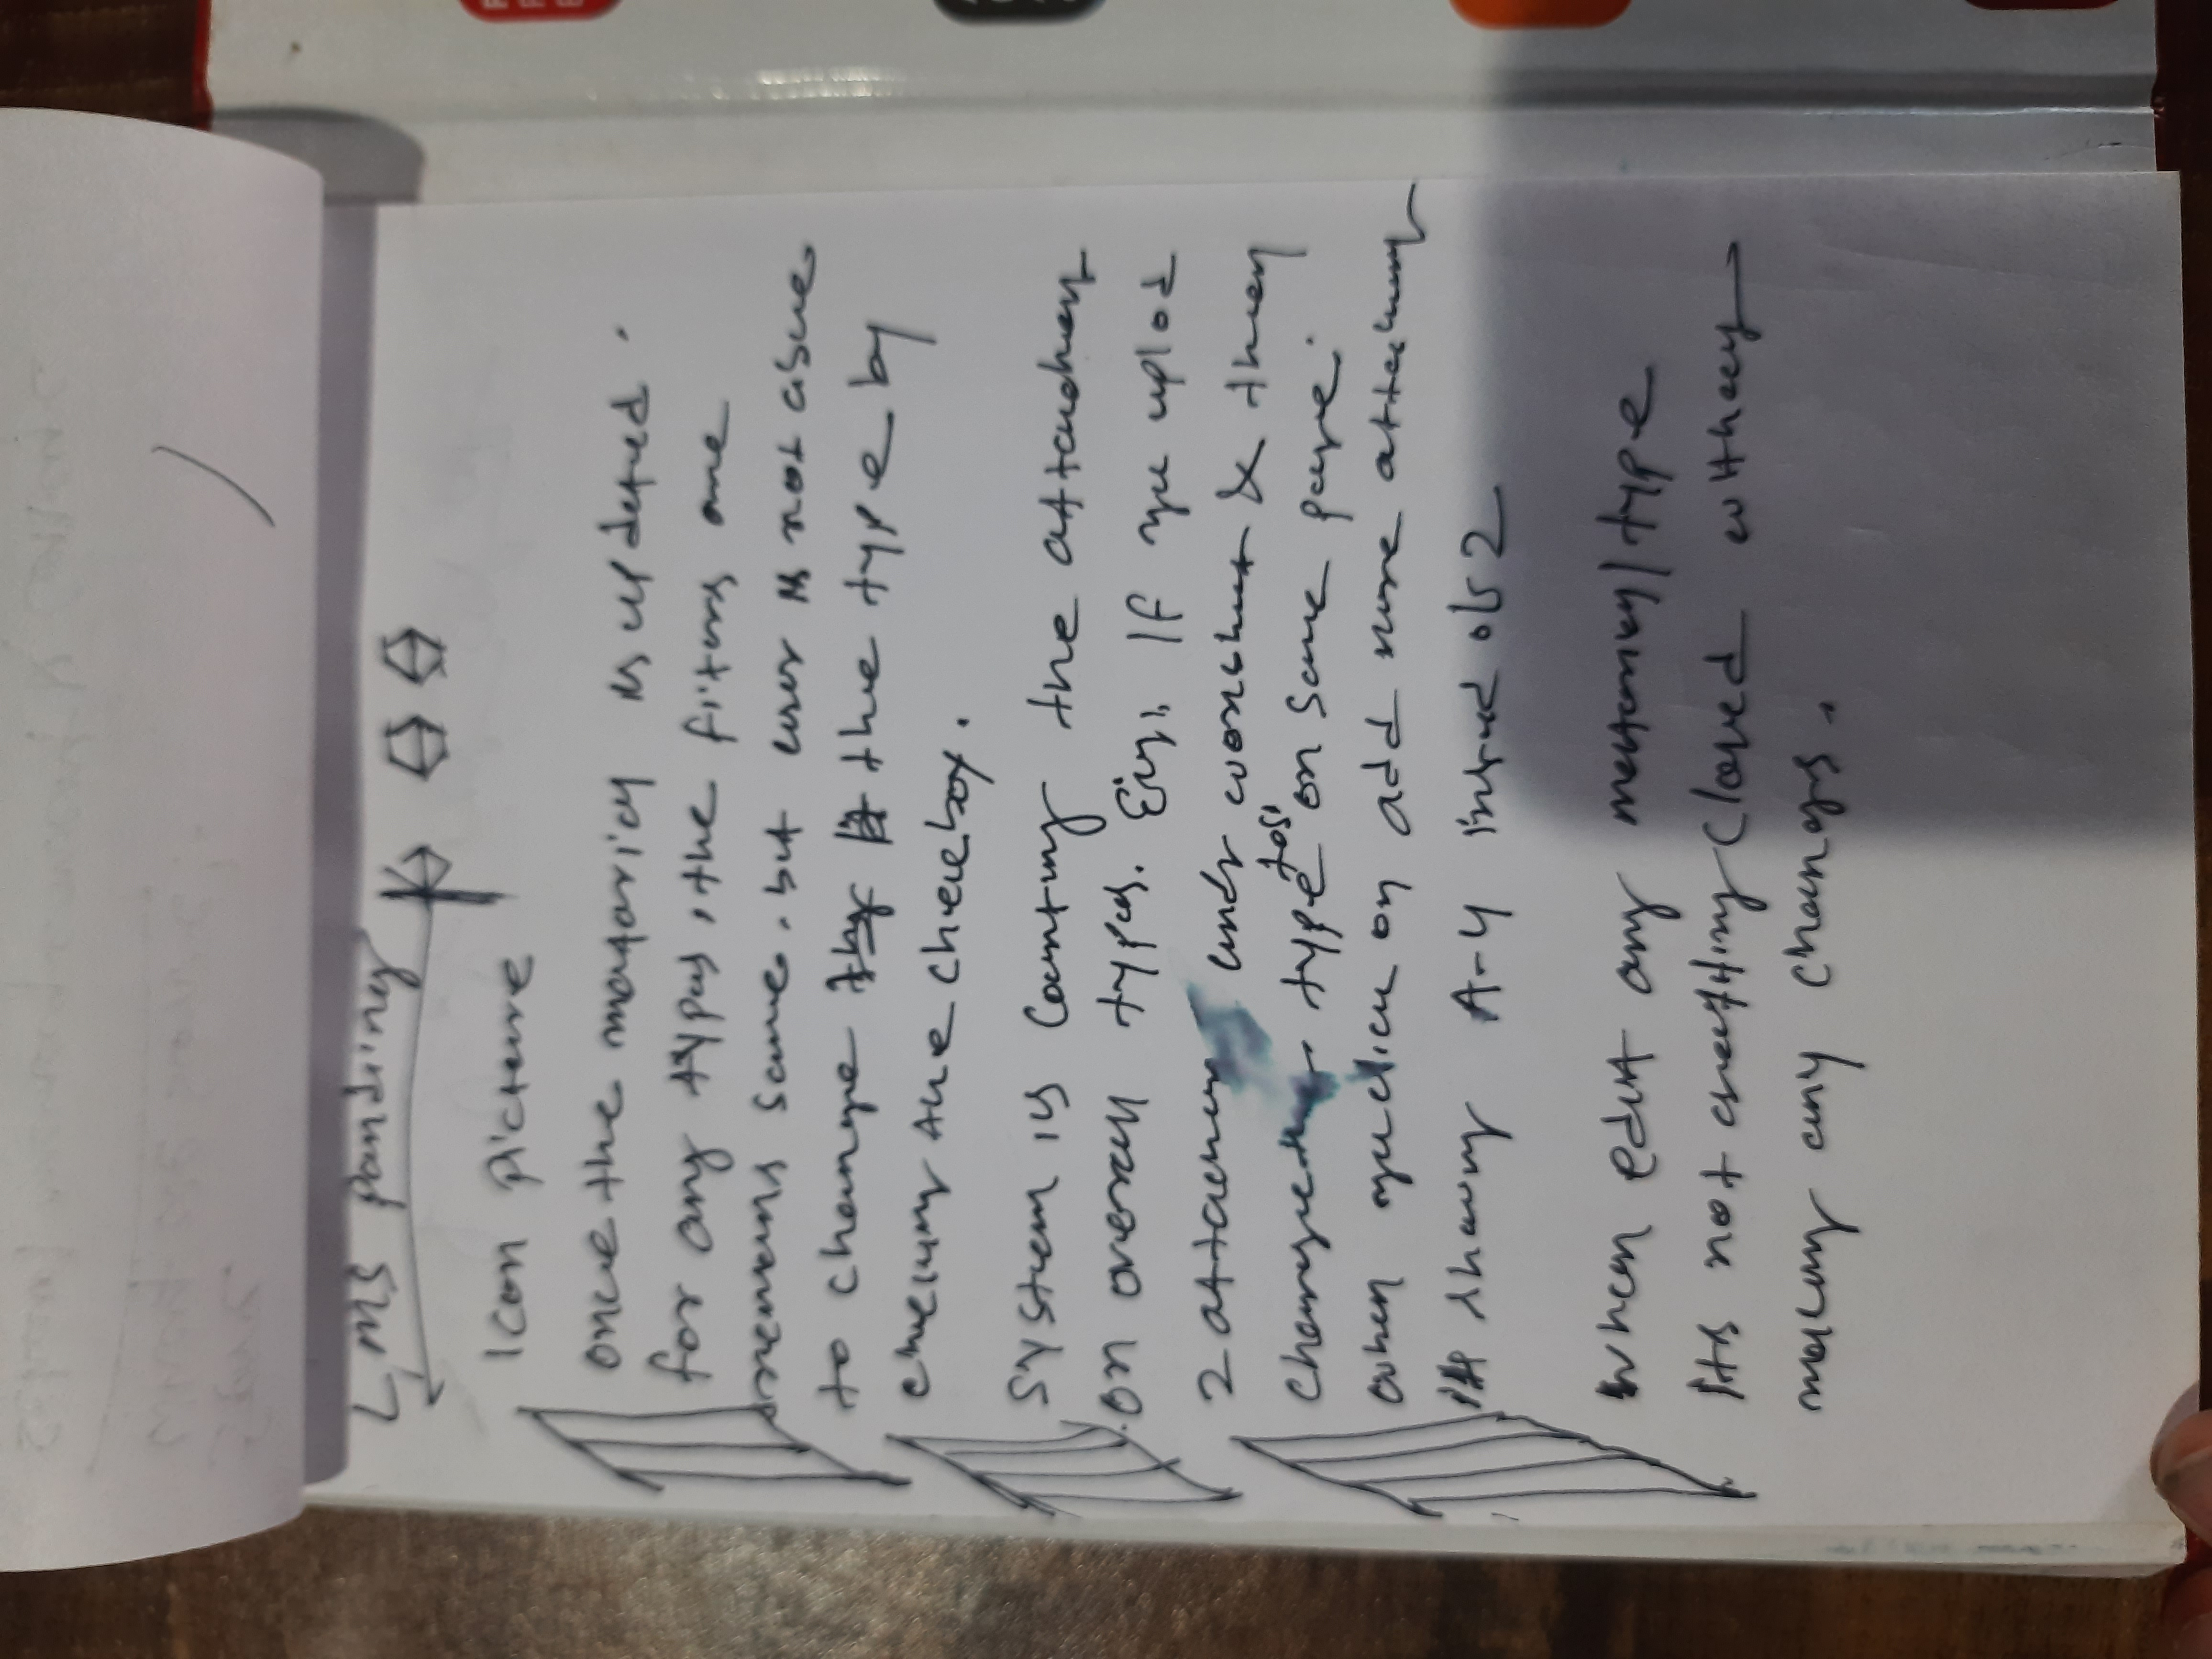 LMS pending
Icon picture
once the material is updated.
for any types, the fitms are
remains same. but user is not able
to change the type by
checking the checkbox.
System is counting the attachment
on overall types. E.g. If you uplod
2 attachment undr worksheet & then
change type to on same page.
when you click on add more attachment
it showing A-4 instead of 2
when edit any material/type
its not getting closed without
making any changes.